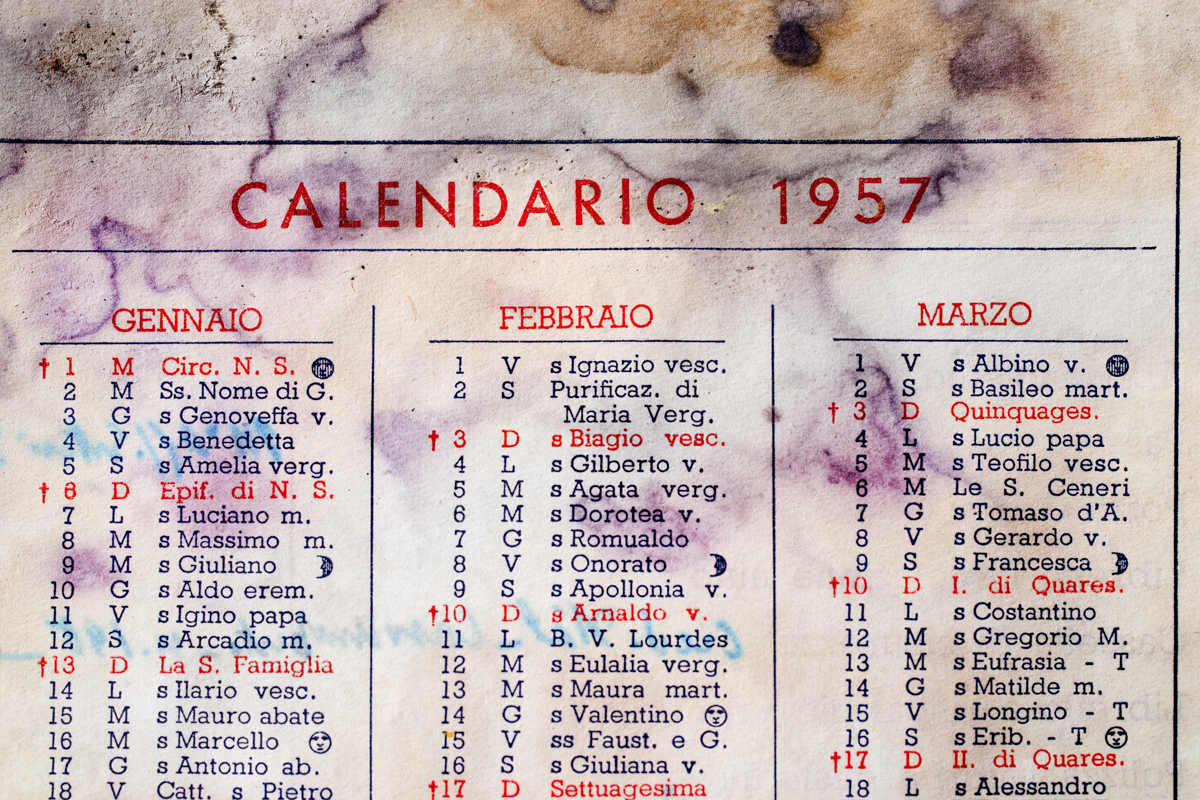 CALENDARIO 1957
GENNAIO
† 1 M Circ. N. S.
2 M Ss. Nome di G.
3 G s Genoveffa v.
4 V s Benedetta
5 S s Amelia verg.
† 6 D Epif. di N. S.
7 L s Luciano m.
8 M s Massimo m.
9 M s Giuliano
10 G s Aldo erem.
11 V s Igino papa
12 S s Arcadio m.
†13 D La S. Famiglia
14 L s Ilario vesc.
15 M s Mauro abate
16 M s Marcello
17 G s Antonio ab.
18 V Catt. s Pietro
FEBBRAIO
1 V s Ignazio vesc.
2 S Purificaz. di
Maria Verg.
† 3 D s Biagio vesc.
4 L s Gilberto v.
5 M s Agata verg.
6 M s Dorotea v.
7 G s Romualdo
8 V s Onorato
9 S s Apollonia v.
†10 D s Arnaldo v.
11 L B. V. Lourdes
12 M s Eulalia verg.
13 M s Maura mart.
14 G s Valentino
15 V ss Faust. e G.
16 S s Giuliana v.
†17 D Settuagesima
MARZO
1 V s Albino v.
2 S s Basileo mart.
† 3 D Quinquages.
4 L s Lucio papa
5 M s Teofilo vesc.
6 M Le S. Ceneri
7 G s Tomaso d'A.
8 V s Gerardo v.
9 S s Francesca
†10 D I. di Quares.
11 L s Costantino
12 M s Gregorio M.
13 M s Eufrasia - T
14 G s Matilde m.
15 V s Longino - T
16 S s Erib. - T
†17 D II. di Quares.
18 L s Alessandro